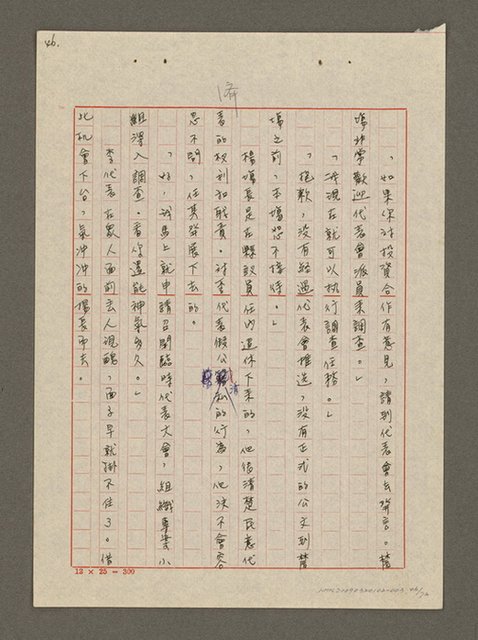 46.
濟
「如果你对投資合作有意見，請到代表會去發言。鶯
塢非常歡迎代表會派員來調查。」
「我現在就可以執行調查任務。」
「抱歉，沒有經過代表會推選，沒有正式的公文到鶯
塢之前，本塢恕不接待。」
楊塢長是在縣政員任內退休下來的，他很清楚民意代
表的权利和职責。对李代表假公濟私的行為，他決不會容
忍不問，任其發展下去的。
「好，我馬上就申請召開臨時代表大會，組織專案小
組深入調查。看你還能神氣多久。」
李代表在眾人面前丟人現醜，面子早就掛不住了。借
此机會下台，氣沖沖的揚長而去。
12 × 25 = 300